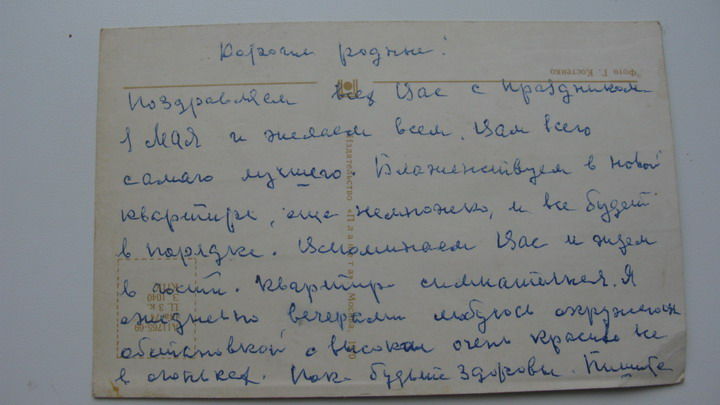 Дорогие родные!
Фото Г. Костенко
Поздравляем всех Вас с праздником
1 Мая и желаем всем Вам всего
самаго лучшего. Блаженствуем в новой
квартире, еще немножко, и все будет
в порядке. Вспоминаем Вас и ждем
в гости. Квартира симпатичная. Я
ежедневно вечерами любуюсь окружающ
обстановкой с высоты очень красиво все
в огоньках. Пока будьте здоровы. Пишите
Издательство «Плакат». Москва. 1980